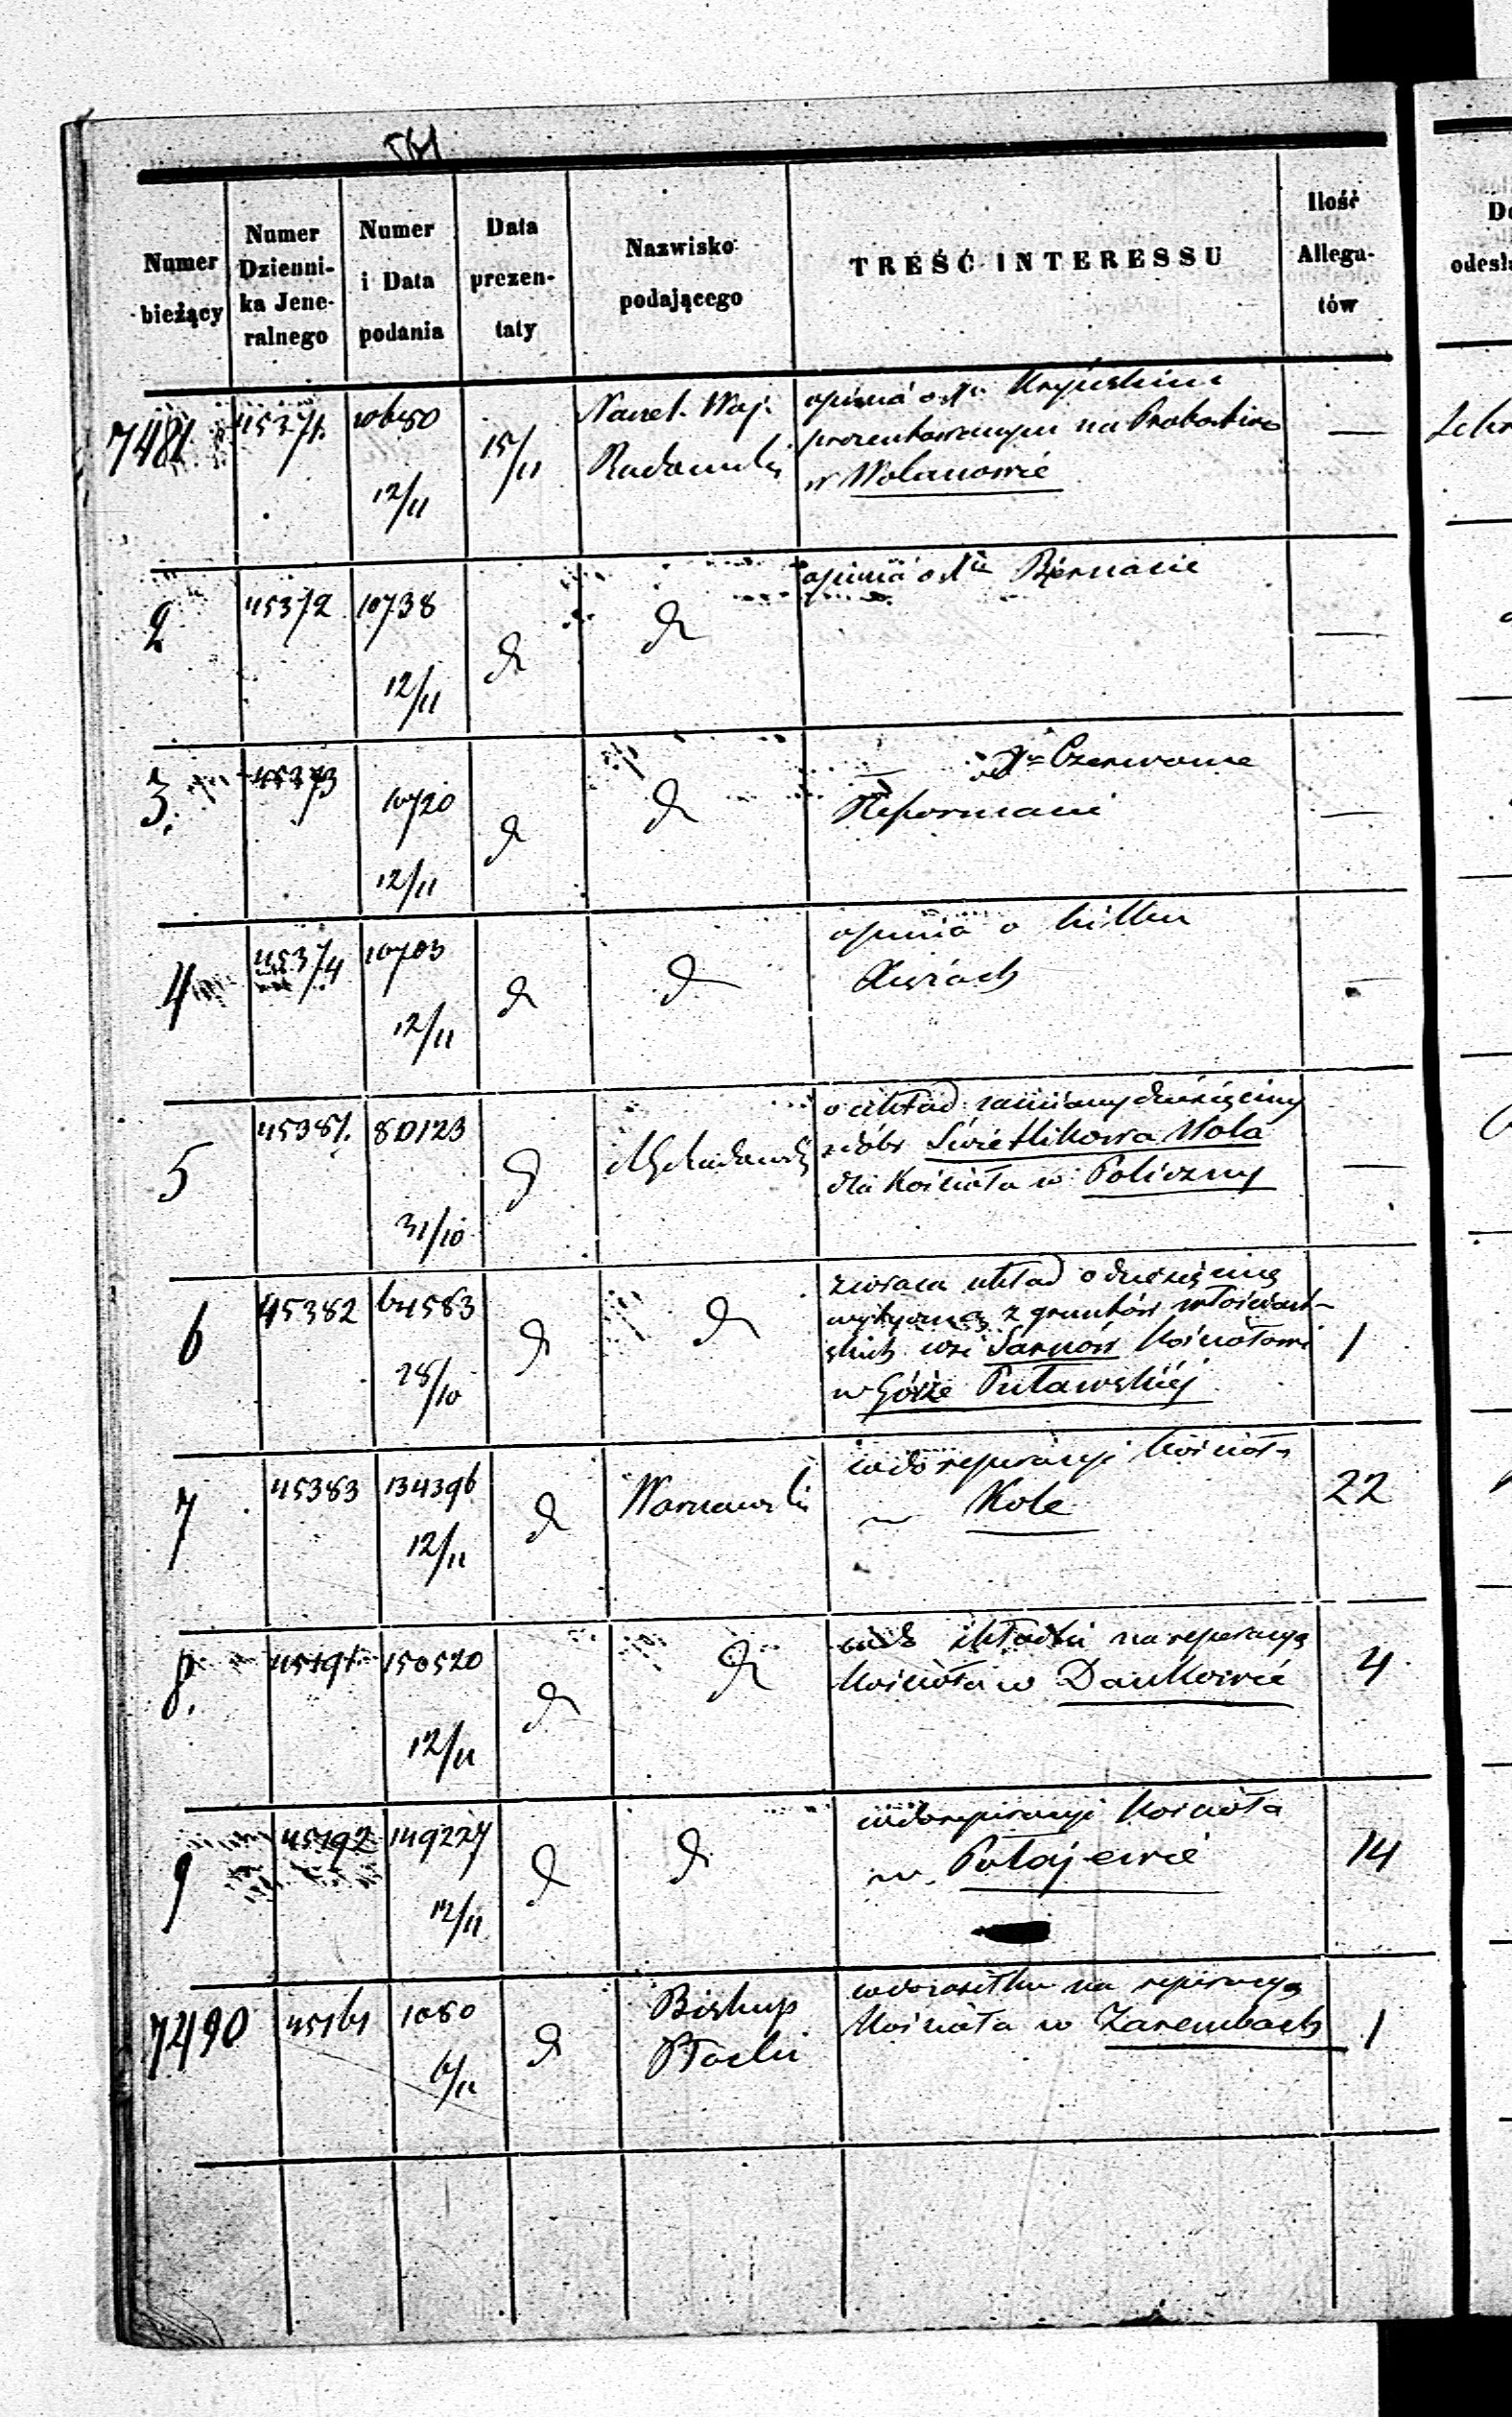 561
Numer bieżący
Numer Dzienni-ka Jene-ralnego
Numer i Data podania
Data prezen-taty
Nazwisko podającego
TREŚĆ INTERESSU
Ilość Allega-tów
7481 45371. 10680 12/11 15/11 Naczel. Woj. opinia o
prezentowanym na Probostwo
w Wolanowie —
2 45372 10738 12/11 d d opinia o —
3. 45373 10720 12/11 d d
—
4 45374 10703 12/11 d d opinia o —
5 45381. 80123 31/10 d o układ zamiany dziesięciny
z dóbr Świetlikowa Wola
dla Kościoła w Policzny —
6 45382 64583 28/10 d d zwraca układ o dziesięcinę
wytyczną z gruntów włościań-
skich wsi Sarnów Kościołowi
w Górze Puławskiéj 1
7 45383 134396 12/11 d Warszawski co do reperacyi Kościoła
w Kole 22
8. 150520 12/11 d d co do składki na reperacyą
Kościoła w Dankowie 4
9 45192 149227 12/11 d d co do reperacyi Kościoła
w 14
7490 45161 1080 6/11 d Biskup
Płocki
co do zasiłku na reperacyą
Kościoła w Zarembach 1